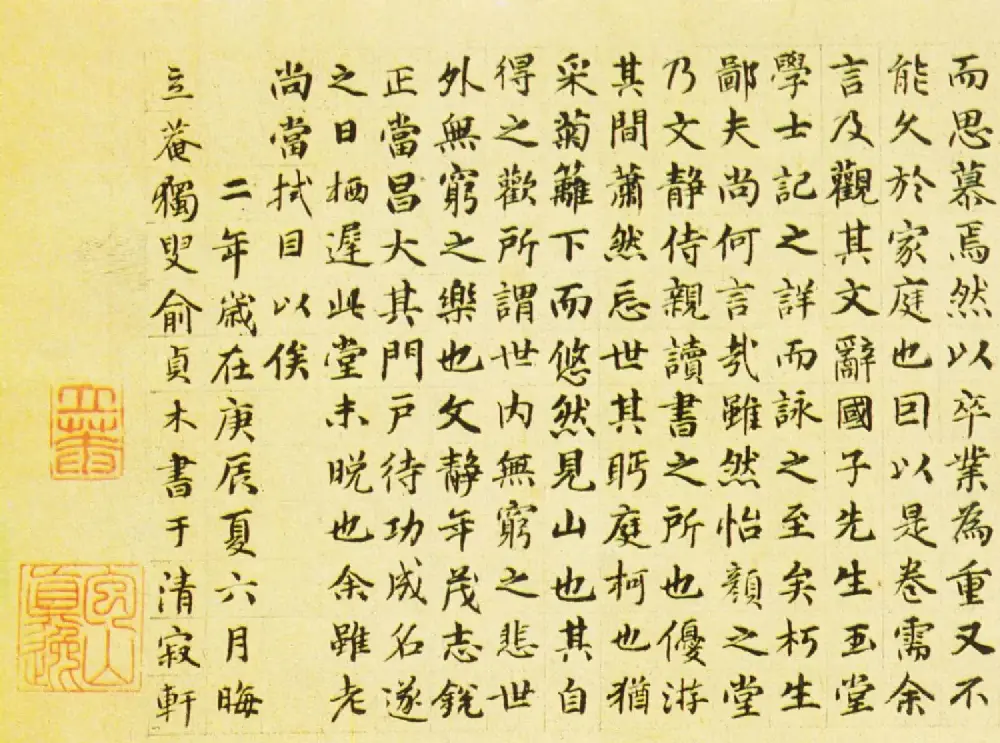 而思慕焉然以卒業為重又不
能久於家庭也囙以是卷需余
言及觀其文辭國子先生玉堂
學士記之詳而詠之至矣朽生
鄙夫尚何言哉雖然怡顏之堂
乃文靜侍親讀書之所也優游
其間蕭然忘世其眄庭柯也猶
采菊籬下而悠然見山也其自
得之歡所謂世内無窮之悲世
外無窮之樂也文靜年茂志銳
正當昌大其門戶待功成名遂
之日栖遲此堂未晚也余雖老
尚當拭目以俟
二年歲在庚辰夏六月晦
立菴獨叟俞貞木書于清寂軒
包山真逸